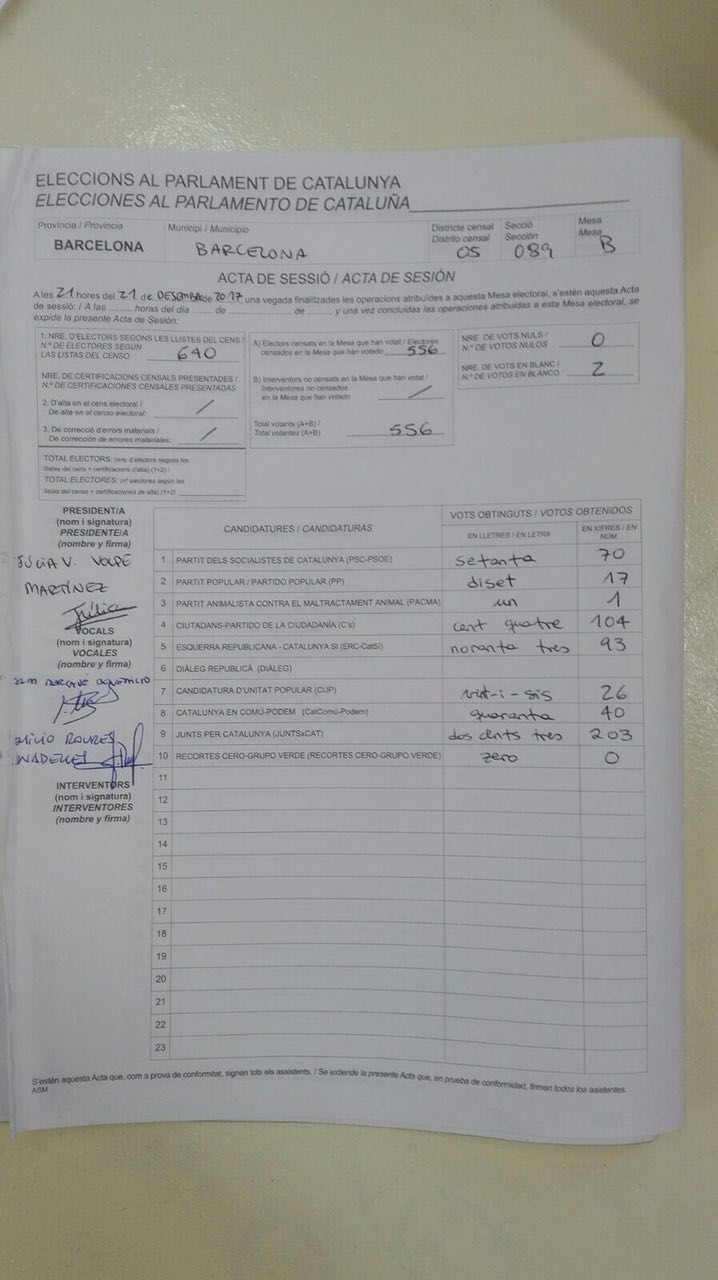 ELECCIONS AL PARLAMENT DE CATALUNYA
ELECCIONES AL PARLAMENTO DE CATALUÑA
Província / Provincia
BARCELONA
Municipi / Municipio
BARCELONA
Districte censal
Distrito censal
05
Secció
Sección
089
Mesa
Mesa
B
ACTA DE SESSIÓ / ACTA DE SESIÓN
A les 21 hores del 21 de DESEMBRE de 2017 una vegada finalitzades les operacions atribuïdes a aquesta Mesa electoral, s'estén aquesta Acta
de sessió: / A las ......... horas del día ...... de .................. de ........, y una vez concluidas las operaciones atribuidas a esta Mesa electoral, se
expide la presente Acta de Sesión:
1. NRE. D'ELECTORS SEGONS LES LLISTES DEL CENS /
N.º DE ELECTORES SEGÚN
LAS LISTAS DEL CENSO 640
NRE. DE CERTIFICACIONS CENSALS PRESENTADES /
N.º DE CERTIFICACIONES CENSALES PRESENTADAS
2. D'alta en el cens electoral /
De alta en el censo electoral: /
3. De correcció d'errors materials /
De corrección de errores materiales: /
TOTAL ELECTORS: (nre. d'electors segons les
llistes del cens + certificacions d'alta) (1+2) /
TOTAL ELECTORES: (nº electores según las
listas del censo + certificaciones de alta) (1+2)
A) Electors censats en la Mesa que han votat / Electores
censados en la Mesa que han votado 556
B) Interventors no censats en la Mesa que han votat /
Interventores no censados
en la Mesa que han votado /
Total votants (A+B) /
Total votantes (A+B) 556
NRE. DE VOTS NULS /
N.º DE VOTOS NULOS 0
NRE. DE VOTS EN BLANC /
N.º DE VOTOS EN BLANCO 2
PRESIDENT/A
(nom i signatura)
PRESIDENTE/A
(nombre y firma)
JÚLIA V. VOLPE
MARTÍNEZ
Júlia
VOCALS
(nom i signatura)
VOCALES
(nombre y firma)
INTERVENTORS
(nom i signatura)
INTERVENTORES
(nombre y firma)
CANDIDATURES / CANDIDATURAS
VOTS OBTINGUTS / VOTOS OBTENIDOS
EN LLETRES / EN LETRA
EN XIFRES / EN NÚM
1 PARTIT DELS SOCIALISTES DE CATALUNYA (PSC-PSOE) setanta 70
2 PARTIT POPULAR / PARTIDO POPULAR (PP) diset 17
3 PARTIT ANIMALISTA CONTRA EL MALTRACTAMENT ANIMAL (PACMA) un 1
4 CIUTADANS-PARTIDO DE LA CIUDADANÍA (C's) cent quatre 104
5 ESQUERRA REPUBLICANA - CATALUNYA SÍ (ERC-CatSí) noranta tres 93
6 DIÀLEG REPUBLICÀ (DIÀLEG)
7 CANDIDATURA D'UNITAT POPULAR (CUP) vint-i-sis 26
8 CATALUNYA EN COMÚ-PODEM (CatComú-Podem) quaranta 40
9 JUNTS PER CATALUNYA (JUNTSxCAT) dos cents tres 203
10 RECORTES CERO-GRUPO VERDE (RECORTES CERO-GRUPO VERDE) zero 0
11
12
13
14
15
16
17
18
19
20
21
22
23
S'estén aquesta Acta que, com a prova de conformitat, signen tots els assistents. / Se extiende la presente Acta que, en prueba de conformidad, firman todos los asistentes.
ASM